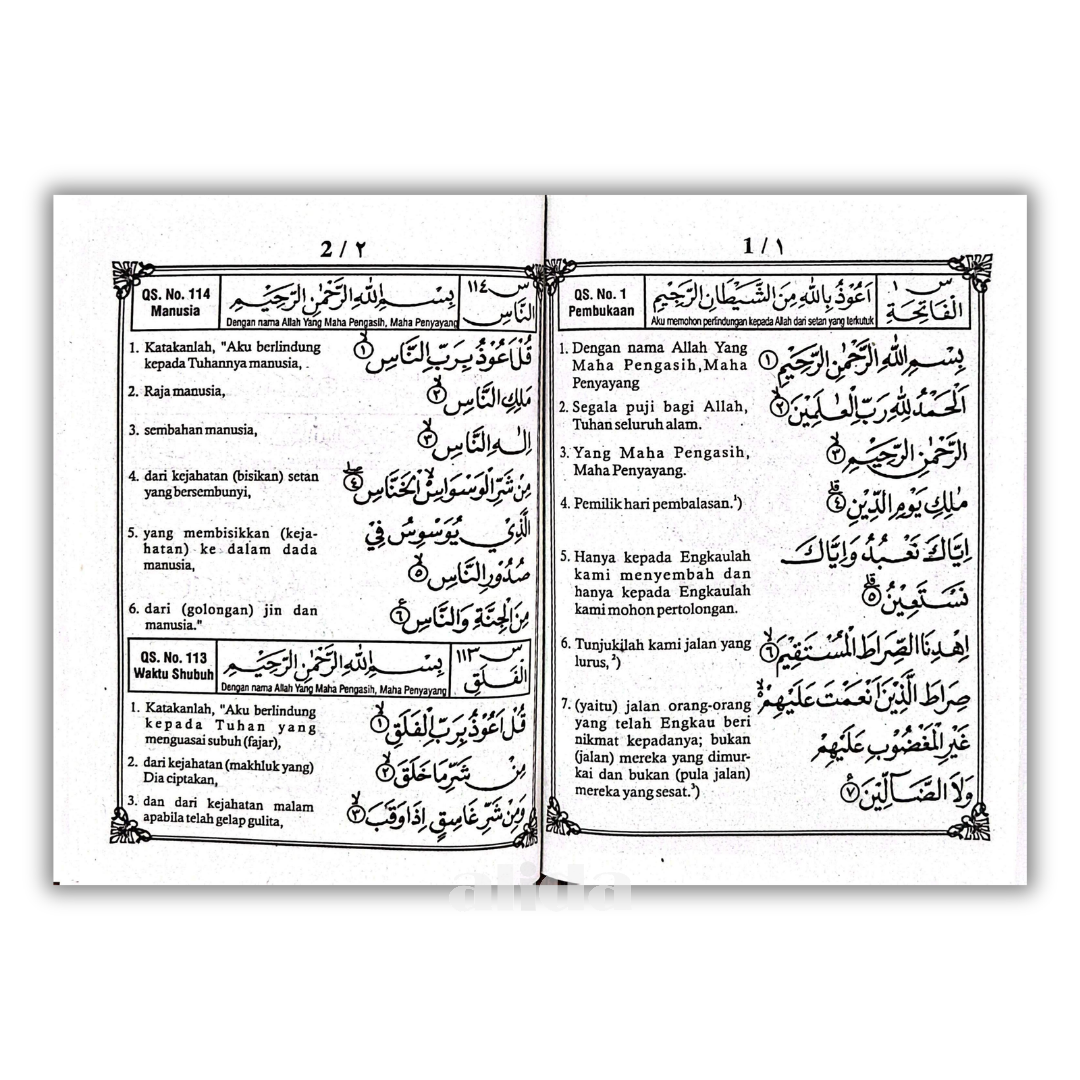 1 / ١
QS. No. 1
Pembukaan
اَعُوْذُ بِاللهِ مِنَ الشَّيْطَانِ الرَّجِيْمِ
Aku memohon perlindungan kepada Allah dari setan yang terkutuk
س ١
الْفَاتِحَةُ
1. Dengan nama Allah Yang
Maha Pengasih,Maha
Penyayang
بِسْمِ اللهِ الرَّحْمٰنِ الرَّحِيْمِ ١
2. Segala puji bagi Allah,
Tuhan seluruh alam.
اَلْحَمْدُ لِلّٰهِ رَبِّ الْعٰلَمِيْنَ ٢
3. Yang Maha Pengasih,
Maha Penyayang.
الرَّحْمٰنِ الرَّحِيْمِ ٣
4. Pemilik hari pembalasan.¹)
مٰلِكِ يَوْمِ الدِّيْنِ ٤
5. Hanya kepada Engkaulah
kami menyembah dan
hanya kepada Engkaulah
kami mohon pertolongan.
اِيَّاكَ نَعْبُدُ وَاِيَّاكَ
نَسْتَعِيْنُ ٥
6. Tunjukilah kami jalan yang
lurus,²)
اِهْدِنَا الصِّرَاطَ الْمُسْتَقِيْمَ ٦
7. (yaitu) jalan orang-orang
yang telah Engkau beri
nikmat kepadanya; bukan
(jalan) mereka yang dimur-
kai dan bukan (pula jalan)
mereka yang sesat.³)
صِرَاطَ الَّذِيْنَ اَنْعَمْتَ عَلَيْهِمْ
غَيْرِ الْمَغْضُوْبِ عَلَيْهِمْ
وَلَا الضَّآلِّيْنَ ٧
2 / ٢
QS. No. 114
Manusia
بِسْمِ اللهِ الرَّحْمٰنِ الرَّحِيْمِ
Dengan nama Allah Yang Maha Pengasih, Maha Penyayang
س ١١٤
النَّاسِ
1. Katakanlah, "Aku berlindung
kepada Tuhannya manusia,
قُلْ اَعُوْذُ بِرَبِّ النَّاسِ ١
2. Raja manusia,
مَلِكِ النَّاسِ ٢
3. sembahan manusia,
اِلٰهِ النَّاسِ ٣
4. dari kejahatan (bisikan) setan
yang bersembunyi,
مِنْ شَرِّ الْوَسْوَاسِ الْخَنَّاسِ ٤
5. yang membisikkan (keja-
hatan) ke dalam dada
manusia,
الَّذِيْ يُوَسْوِسُ فِيْ
صُدُوْرِ النَّاسِ ٥
6. dari (golongan) jin dan
manusia."
مِنَ الْجِنَّةِ وَالنَّاسِ ٦
QS. No. 113
Waktu Shubuh
بِسْمِ اللهِ الرَّحْمٰنِ الرَّحِيْمِ
Dengan nama Allah Yang Maha Pengasih, Maha Penyayang
س ١١٣
الْفَلَقِ
1. Katakanlah, "Aku berlindung
kepada Tuhan yang
menguasai subuh (fajar),
قُلْ اَعُوْذُ بِرَبِّ الْفَلَقِ ١
2. dari kejahatan (makhluk yang)
Dia ciptakan,
مِنْ شَرِّ مَا خَلَقَ ٢
3. dan dari kejahatan malam
apabila telah gelap gulita,
وَمِنْ شَرِّ غَاسِقٍ اِذَا وَقَبَ ٣
alida